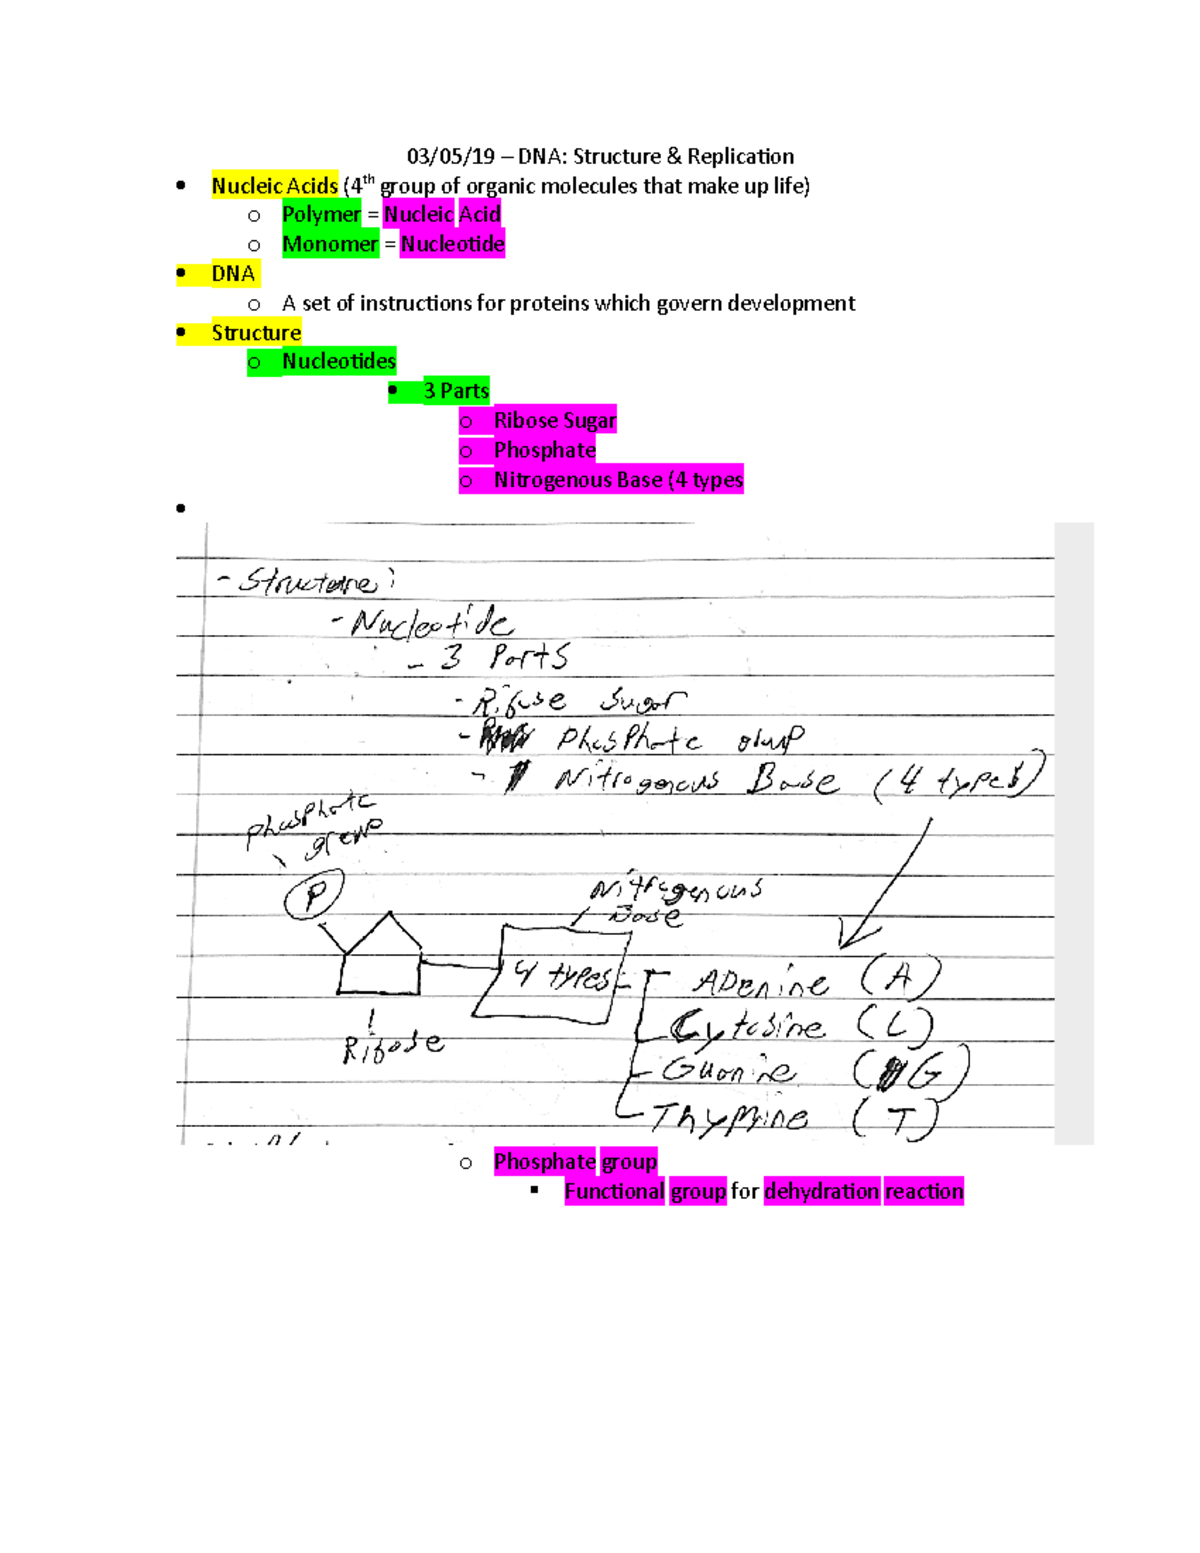 03/05/19 – DNA: Structure & Replication
• Nucleic Acids (4th group of organic molecules that make up life)
o Polymer = Nucleic Acid
o Monomer = Nucleotide
• DNA
o A set of instructions for proteins which govern development
• Structure
o Nucleotides
• 3 Parts
o Ribose Sugar
o Phosphate
o Nitrogenous Base (4 types
•
- Structure:
- Nucleotide
- 3 Parts
- Ribose Sugar
- Phosphate
- Nitrogenous Base (4 types)
Phosphate
group
P
Nitrogenous
Base
4 types
Adenine (A)
Cytosine (C)
Guanine (G)
Thymine (T)
Ribose
o Phosphate group
▪ Functional group for dehydration reaction